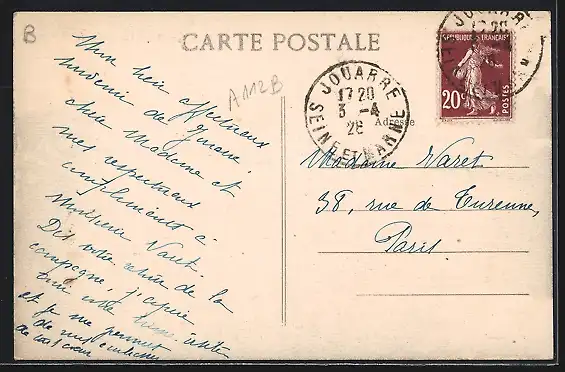 B
CARTE POSTALE
A112B
Mon bien affectueux
souvenir de Jouarre
chère Madame et
mes respectueux
compliments à
Monsieur Varet.
Dès votre retour de la
campagne, j'espère
votre
et je me permets
de
JOUARRE
17 20
3 -4
26
SEINE ET MARNE
Adresse
REPUBLIQUE FRANÇAISE
20c
POSTES
JOUARRE
Madame Varet
38, rue de Turenne,
Paris.